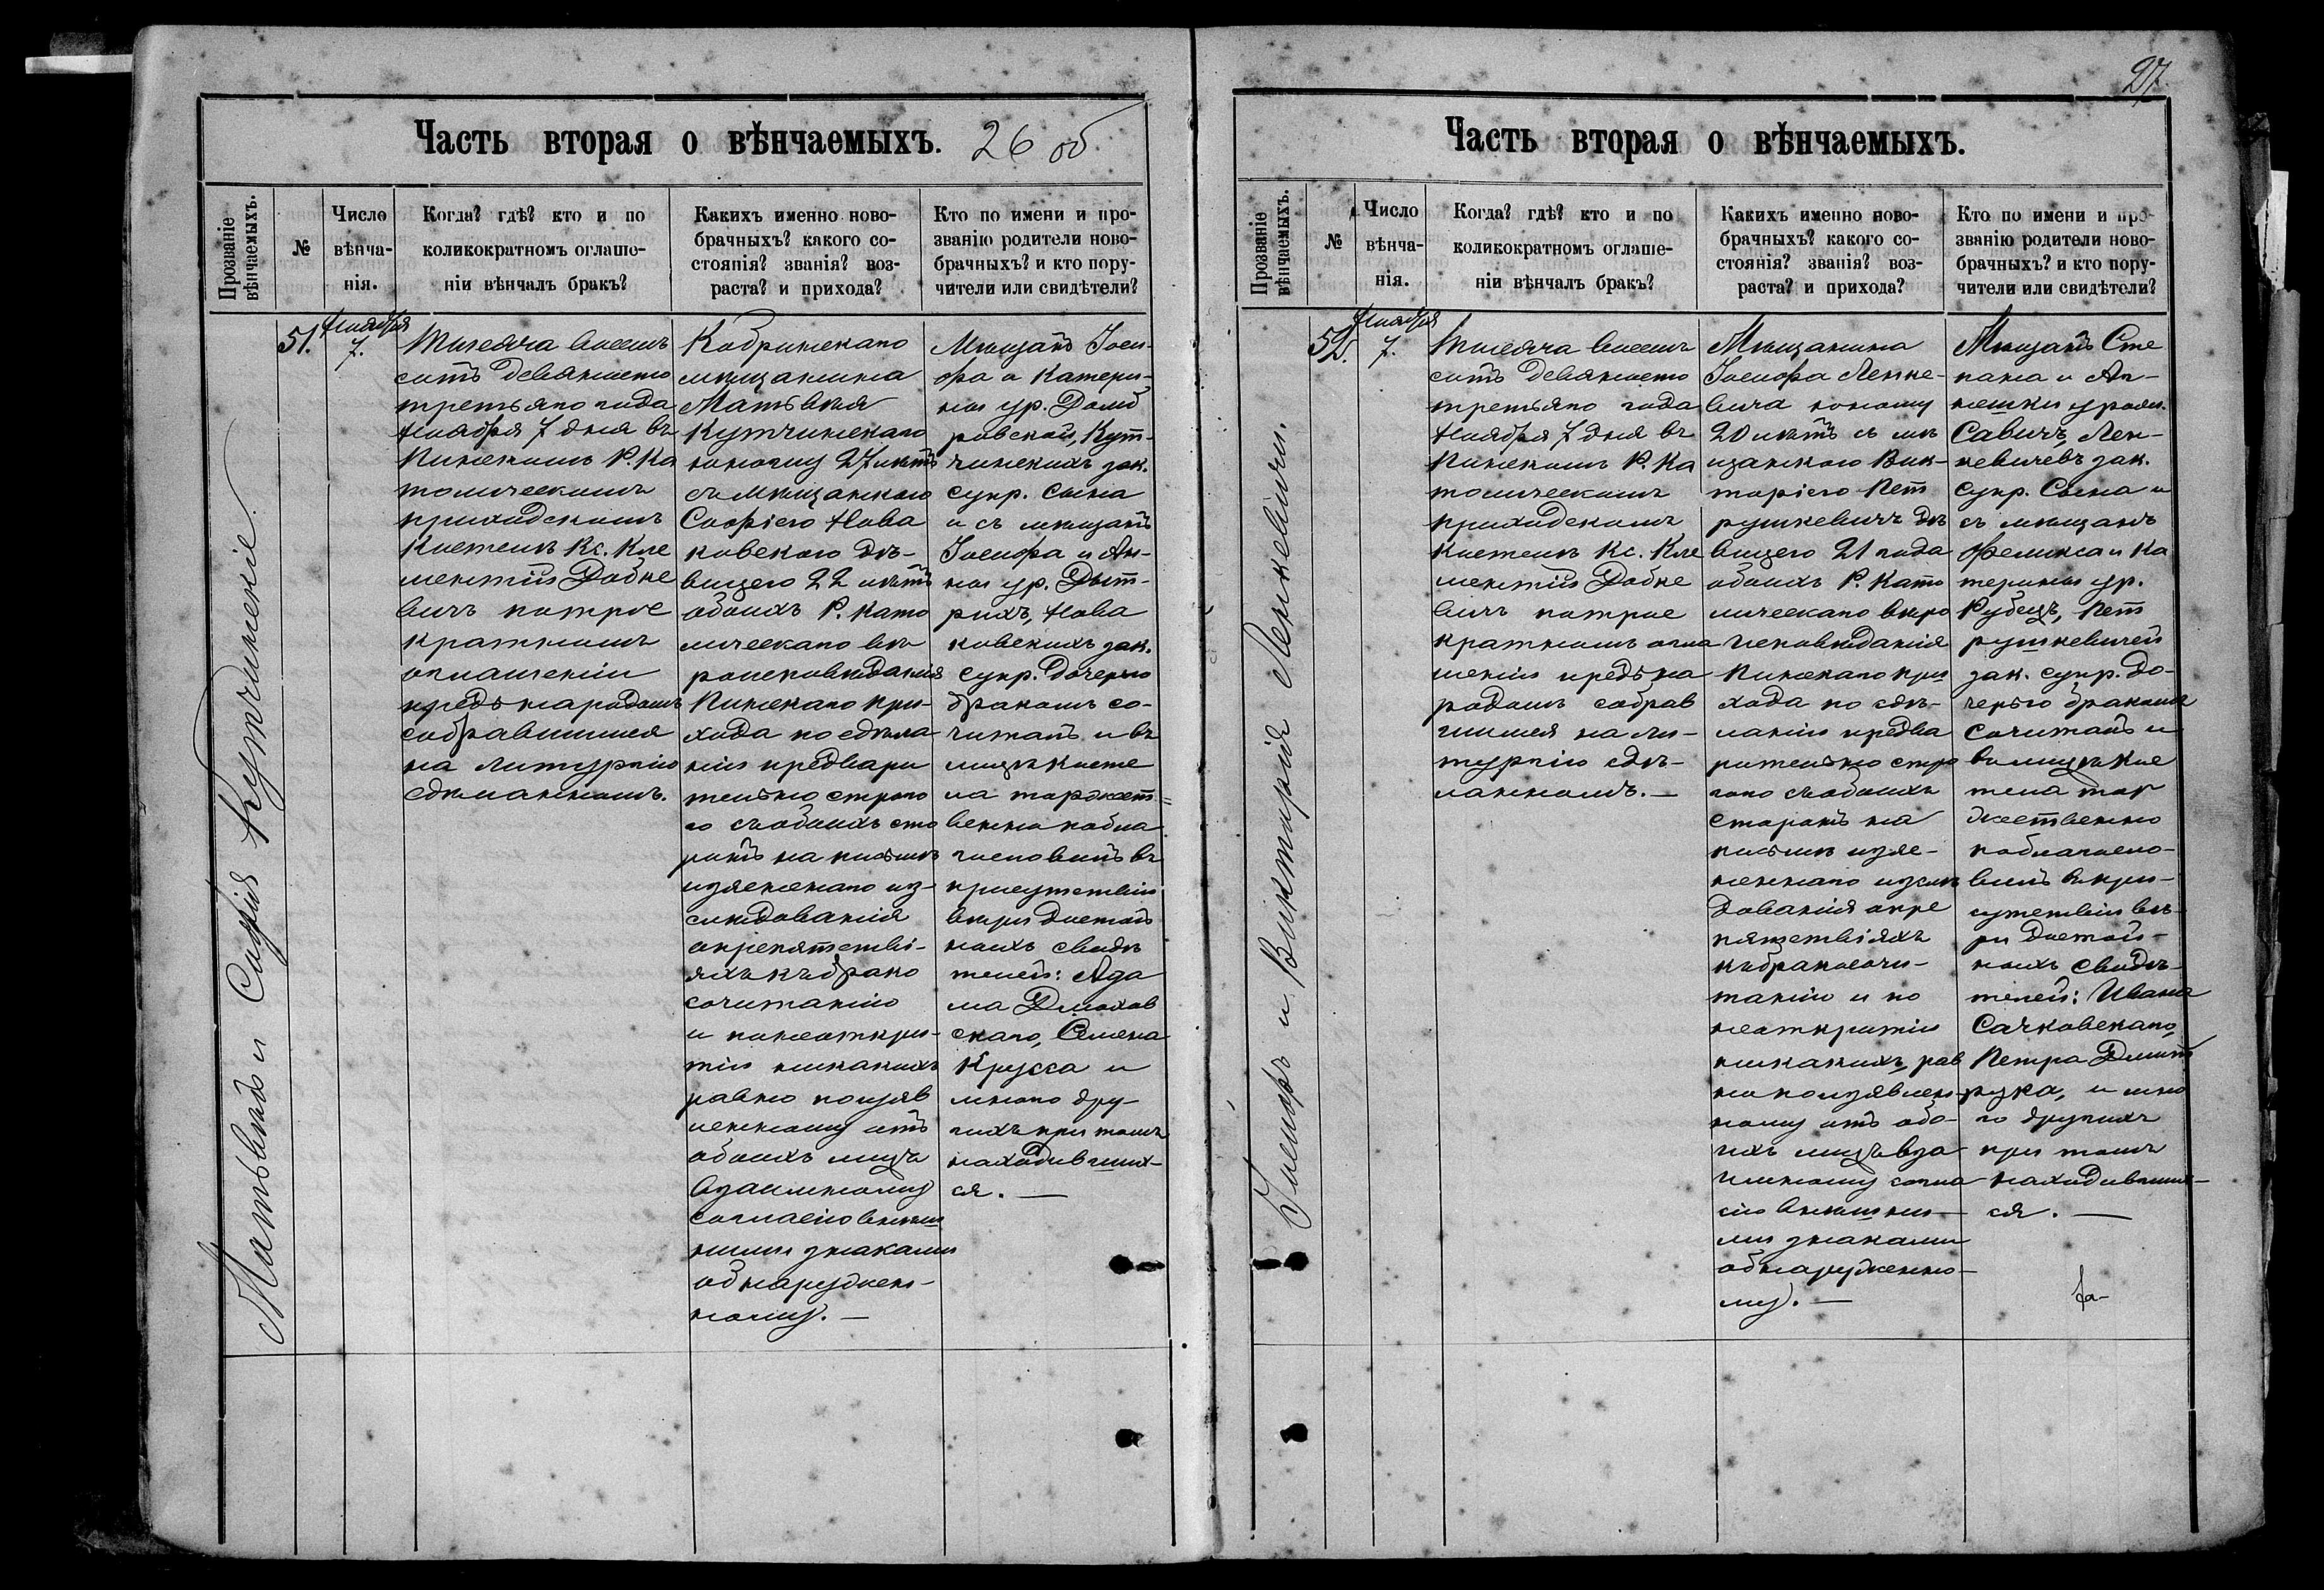 Часть вторая о вѣнчаемыхъ. 26 об.
Прозваніе вѣнчаемыхъ.
№
Число
вѣнча-
нія.
Когда? гдѣ? кто и по
коликократномъ оглаше-
ніи вѣнчалъ бракъ?
Какихъ именно ново-
брачныхъ? какого со-
стоянія? званія? воз-
раста? и прихода?
Кто по имени и про-
званію родители ново-
брачныхъ? и кто пору-
чители или свидѣтели?
Матвѣй и Софія Кутчинскіе
51.
Ноября
7.
Тысяча восемь
сотъ девяносто
третьяго года
Ноября 7 дня въ
Пинскомъ Р. Ка
толическомъ
приходскомъ
костелѣ Кс. Кле
ментій
вичъ по трое
кратномъ
оглашеніи
предъ народомъ
собравшимся
на литургію
сдѣланномъ.
Кобринскаго
мѣщанина
Матвѣя
Кутчинскаго
юношу 27 лѣтъ
съ мѣщанкою
Софіею Нова
ковскою дѣ-
вицею 22 лѣтъ
обоихъ Р. Като
лическаго вѣ
роисповѣданія
Пинскаго при-
хода по сдѣла
ніи предвари
тельно строго
го съ обоихъ сто
ронъ на письмѣ
изясненаго из-
слѣдованія
о препятстві-
яхъ къ брако
сочитанію
и по неоткры-
тіи никакихъ
равно по изяв
ленному отъ
обоихъ лицъ
взаимному
согласію внѣш
ними знаками
обнаружен-
ному. —
Мѣщанъ Іоси-
фа и Катери-
ны ур. Домб
ровской, Кут-
чинскихъ зак.
супр. сына
и съ мѣщанъ
Іосифа и Ан-
ны ур. Дмит-
рихъ, Нова
ковскихъ зак.
супр. дочерью
бракомъ со-
читалъ и въ
лицѣ косте
ла торжест=
венно побла
гословилъ въ
присутствіи
вѣри достой
ныхъ свидѣ
телей: Ада
ма Дмохов
скаго, Семена
Крусса и
много дру-
гихъ при томъ
находивших-
ся. —
27.
Часть вторая о вѣнчаемыхъ.
Прозваніе вѣнчаемыхъ.
№
Число
вѣнча-
нія.
Когда? гдѣ? кто и по
коликократномъ оглаше-
ніи вѣнчалъ бракъ?
Какихъ именно ново-
брачныхъ? какого со-
стоянія? званія? воз-
раста? и прихода?
Кто по имени и про-
званію родители ново-
брачныхъ? и кто пору-
чители или свидѣтели?
Іосифъ и Викторія Ленкевичи.
52.
Ноября
7.
Тысяча восемь
сотъ девяносто
третьяго года
Ноября 7 дня въ
Пинскомъ Р. Ка
толическомъ
приходскомъ
костелѣ Кс. Кле
ментій
вичъ по трое
кратномъ огла
шеніи предъ на
родомъ собрав
шимся на ли-
тургію сдѣ-
ланномъ. —
Мѣщанина
Іосифа Ленке-
вича юношу
20 лѣтъ съ мѣ
щанкою Вик-
торіею Пет
рушкевичъ дѣ
вицею 21 года
обоихъ Р. Като
лическаго вѣро
исповѣданія
Пинскаго при
хода по сдѣ-
ланіи предва
рительно стро
гаго съ обоихъ
сторонъ на
письмѣ изяс-
неннаго изслѣ
дованія о пре
пятствіяхъ
къ бракосочи-
танію и по
неоткрытіи
никакихъ рав
но по изявлен-
ному отъ обо-
ихъ лицъ вза
имному согла
сію внѣшни-
ми знаками
обнаруженно-
му. —
Мѣщанъ Сте
пана и Аг-
нешки урожд.
Савичъ, Лен-
кевичевъ зак.
Супр. Сына и
съ мѣщанъ
Феликса и Ка
терины ур.
Рубецъ, Пет
рушкевичей
зак. супр. до-
черью бракомъ
сочиталъ и
въ лицѣ кос
тела тор
жественно
поблагосло-
вилъ въ при-
сутствіи вѣ-
ри достой-
ныхъ свидѣ-
телей: Ивана
Сачковскаго,
Петра Дмит
рука, и мно
го другихъ
при томъ
находивших-
ся. —